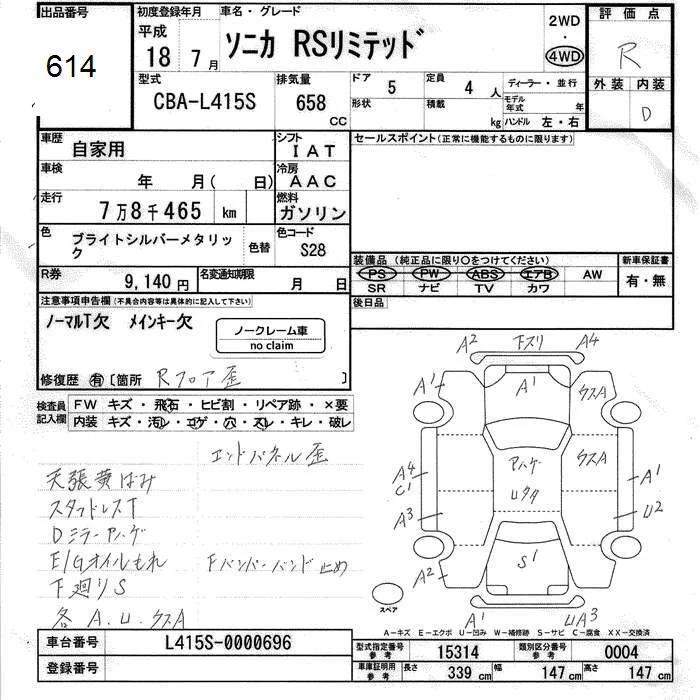 出品番号
614
初度登録年月
平成
18 7月
車名・グレード
ソニカ RSリミテッド
2WD
・
4WD
評価点
R
外装 内装
D
型式
CBA-L415S
排気量
658
CC
ドア
5
定員
4 人
形状
積載
kg
ディーラー・並行
モデル年式 年
ハンドル 左・右
車歴
自家用
シフト
IAT
車検
年 月( 日)
冷房
AAC
走行
7万8千465 km
燃料
ガソリン
色
ブライトシルバーメタリック
色替
色コード
S28
R券
9,140円
名変通知期限
月 日
セールスポイント(正常に機能するものに限ります)
装備品 (純正品に限り○をつけてください)
PS PW ABS エアB AW
SR ナビ TV カワ
新車保証書
有・無
後日品
注意事項申告欄(不具合内容等は具体的に記入して下さい)
ノーマルT欠 メインキー欠
ノークレーム車
no claim
修復歴 有 〔箇所 Rフロア歪 〕
検査員記入欄
FW キズ・飛石・ヒビ割・リペア跡・×要
内装 キズ・汚レ・コゲ・穴・スレ・キレ・破レ
エンドパネル歪
天張黄ばみ
スタッドレスT
Dミラーアハゲ
E/Gオイルもれ
Fバンパーバンド止め
下廻りS
各A.U.クスA
A2 下スリ A4
A1 A1 クスA
A4
C1
アハゲ
クスA
A1
A3
U2
A2
S1
A1
UA3
スペア
A-キズ E-エクボ U-凹み W-補修跡 S-サビ C-腐食 XX-交換済
車台番号
L415S-0000696
登録番号
型式指定番号
参考
15314
類別区分番号
参考
0004
車庫証明用
参考
長さ 339 cm 幅 147 cm 高さ 147 cm